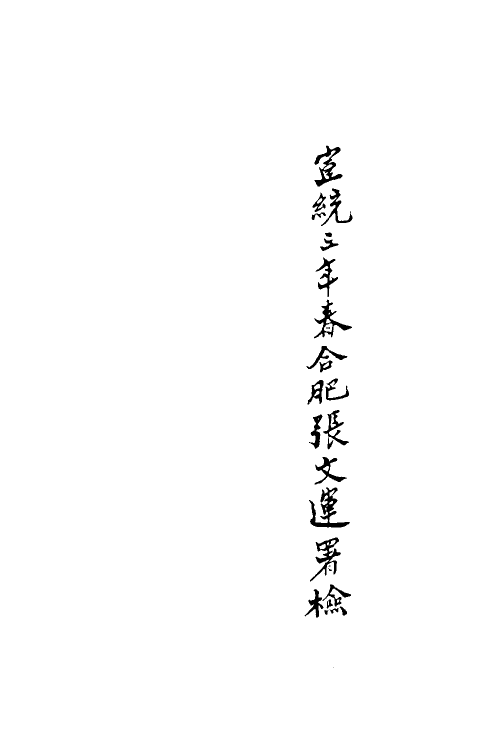 宣統三年春合肥張文運署檢